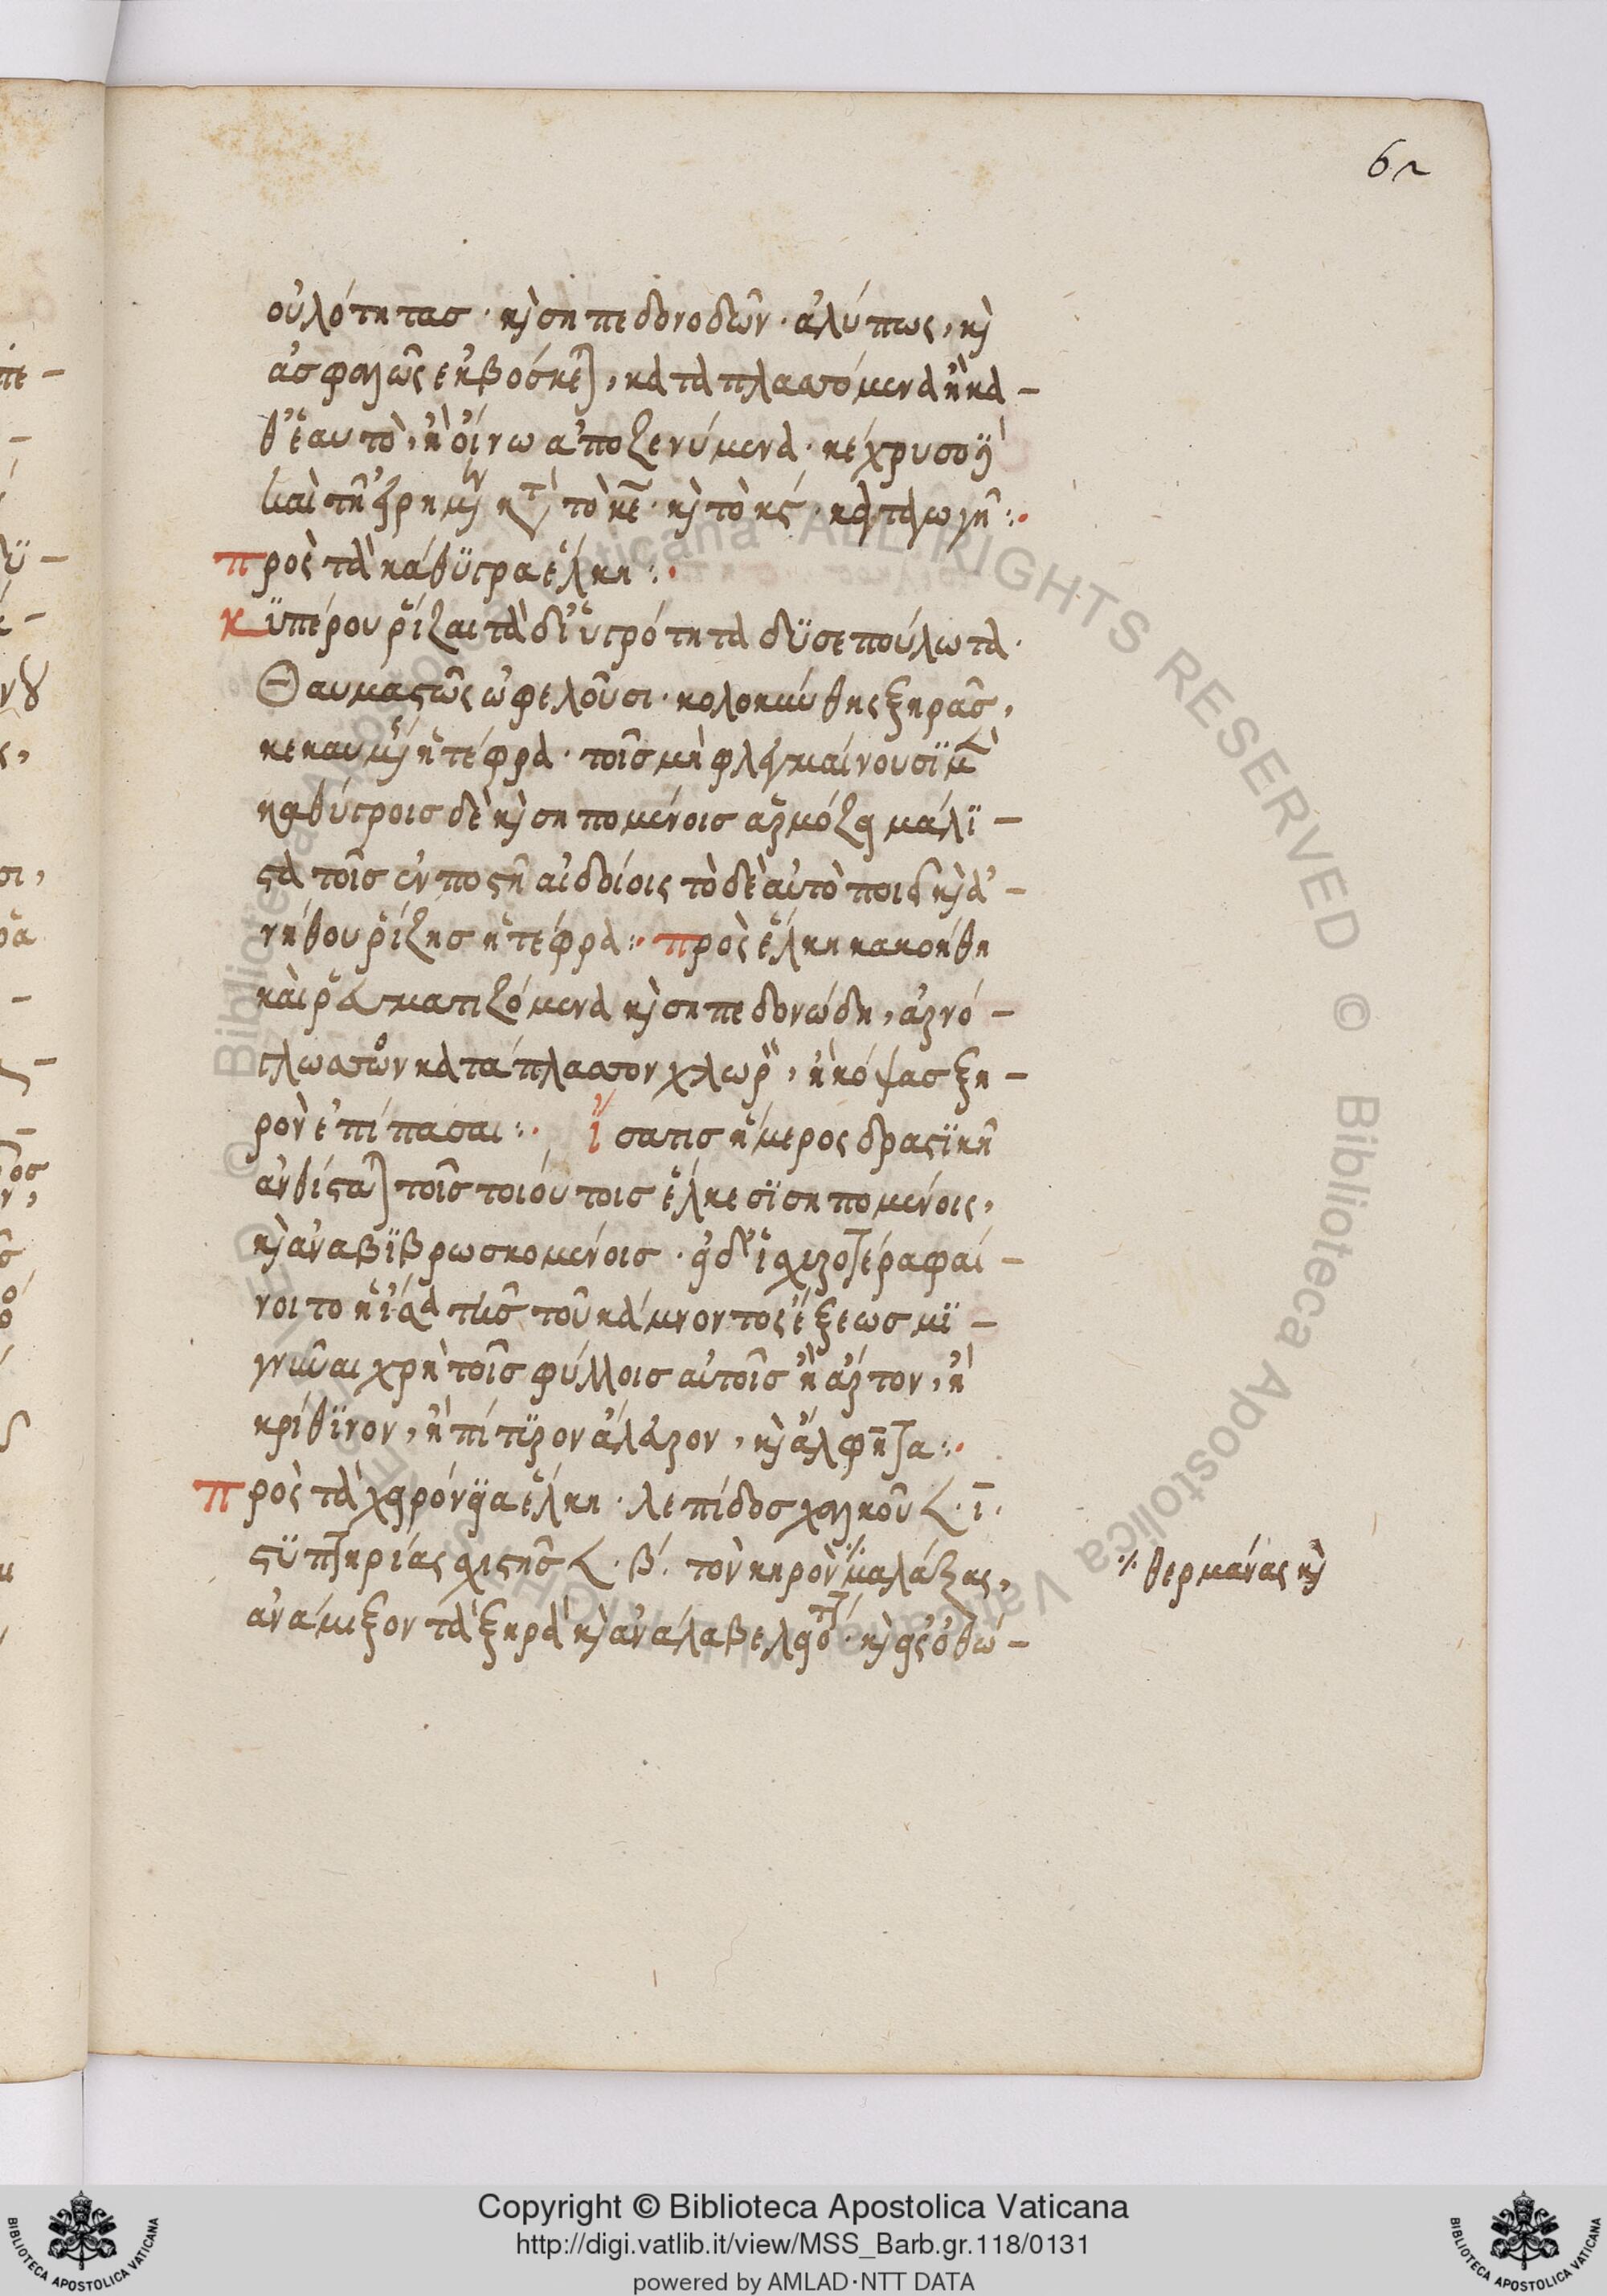 62
οὐλότητας · καὶ σηπεδονοδῶν · ἀλύπως, καὶ
ἀσφαλῶς ἐκβόσκεται, καταπλασσόμενα ἢ κα –
θ' ἑαυτὸ, ἢ οἴνω ἀποζενύμενα · κὲ χρυσοῦ
τὸ κε · καὶ τὸ κς ·
πρὸς τὰ κάθϋγρα ἕλκη :·
κϋπέρου ῥίζαι τὰ δι' ὑγρότητα δϋσεπούλωτα ·
Θαυμαστῶς ὠφελοῦσι · κολοκύνθης ξηρᾶς,
κεκαυμένης ἡ τέφρα · τοῖς μὴ φλεγμαίνουσϊ μὲν
καθύγροις δὲ καὶ σηπομένοις ἁρμόζει μάλϊ –
στα τοῖς ἐν ποσθῆ αἰδοίοις τὸ δὲ αὐτὸ ποιεῖ καὶ ἀ –
νήθου ῥίζης ἡ τέφρα :· πρὸς ἕλκη κακοήθη
καὶ ῥευματιζόμενα καὶ σηπεδονώδη, ἀρνό –
γλωσσον κατάπλασσον χλωρὸν, ἢ κόψας ξη –
ρὸν ἐπίπασαι :· ἴσατις ἥμερος δραστϊκῆ
ἀνθίσταται τοῖς τοιούτοις ἕλκεσϊ σηπομένοις,
καὶ ἀναβϊβρωσκομένοις · εἰ δ' ἰσχυροτέρα φαί –
νοιτο ἡ ἴσατις τοῦ κάμνοντος ἕξεως μϊ –
γνῦναι χρὴ τοῖς φύλλοις αὐτοῖς ἢ ἄρτον, ἢ
κρίθϊνον, ἢ πίτϋρον ἄλευρον, καὶ ἄλφητα :·
πρὸς τὰ χειρόνεια ἕλκη · λεπίδος χαλκοῦ ∠ · ϊ ·
στϋπτηρίας σχιστῆς ∠ · β΄ · τὸν κηρὸν ·/· μαλάξας,
ἀνάμιξον τὰ ξηρὰ καὶ ἀνάλαβε · καὶ εἰς ὀθό –
·/· θερμάνας καὶ
Copyright © Biblioteca Apostolica Vaticana
http://digi.vatlib.it/view/MSS_Barb.gr.118/0131
powered by AMLAD·NTT DATA
BIBLIOTECA APOSTOLICA VATICANA
BIBLIOTECA APOSTOLICA VATICANA